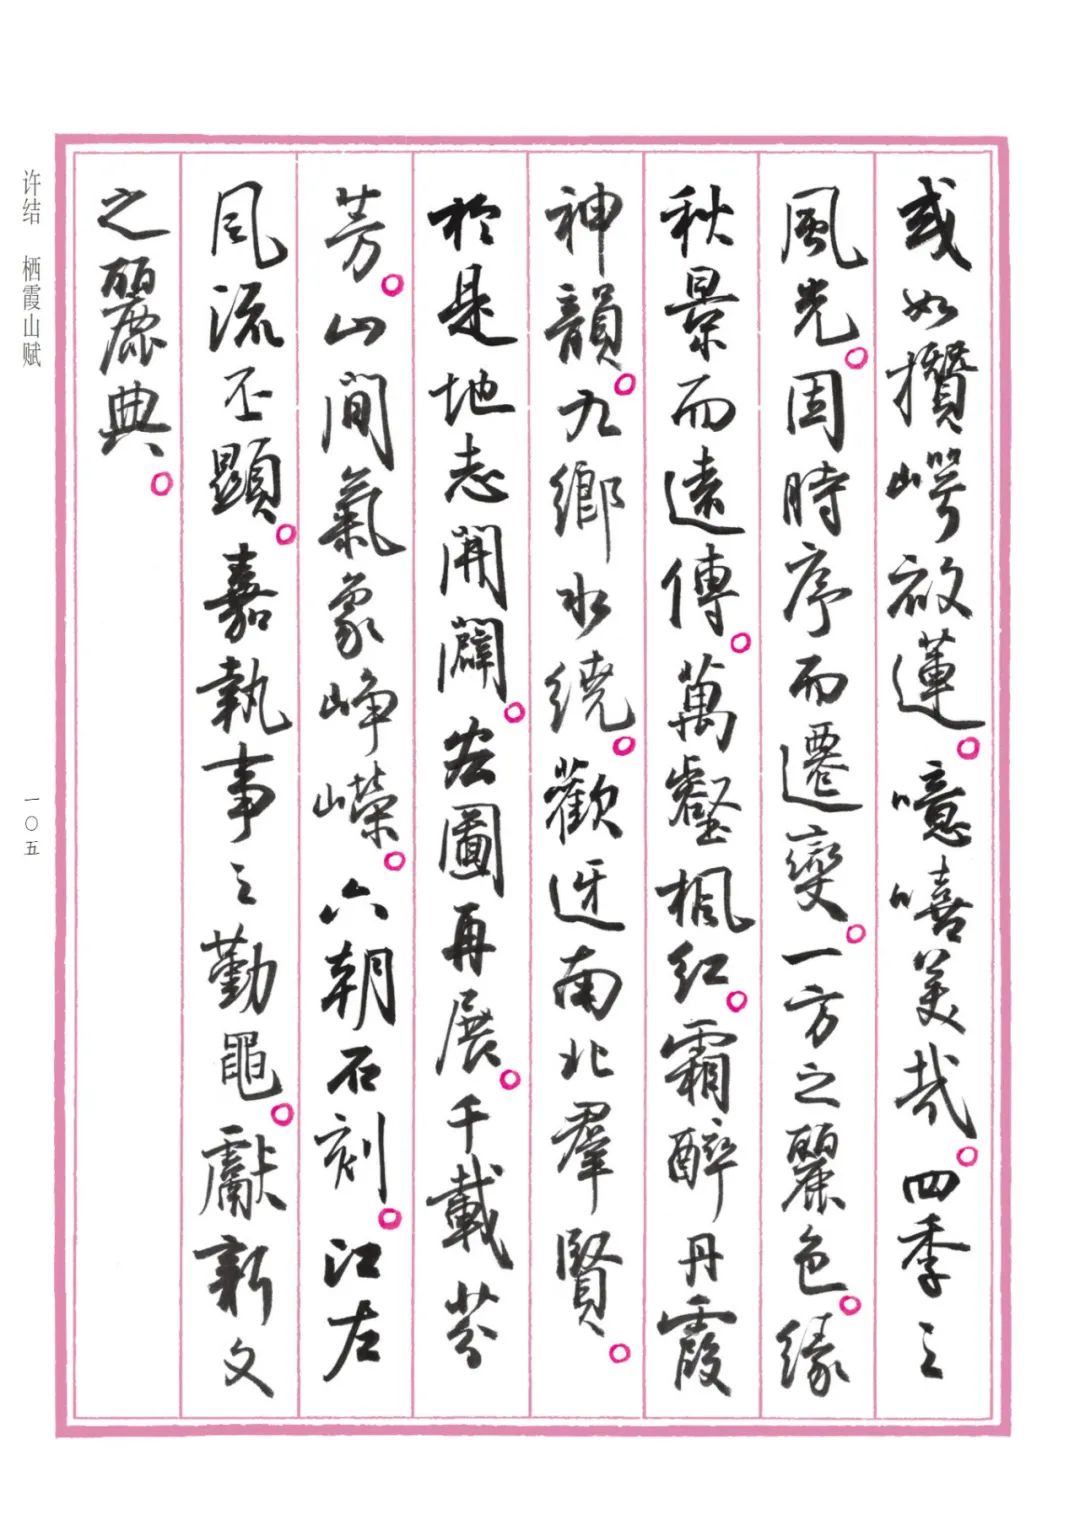 或如攢崿放蓮。噫嘻美哉。四季之
風光。因時序而遷變。一方之麗色。緣
秋景而遠傳。萬壑楓紅。霜醉丹霞
神韻。九鄉水繞。歡迓南北羣賢。
於是地志開闢。宏圖再展。千載芬
芳。山間氣象崢嶸。六朝石刻。江左
風流丕顯。嘉執事之勤黽。獻新文
之麗典。
许结 栖霞山赋
一〇五